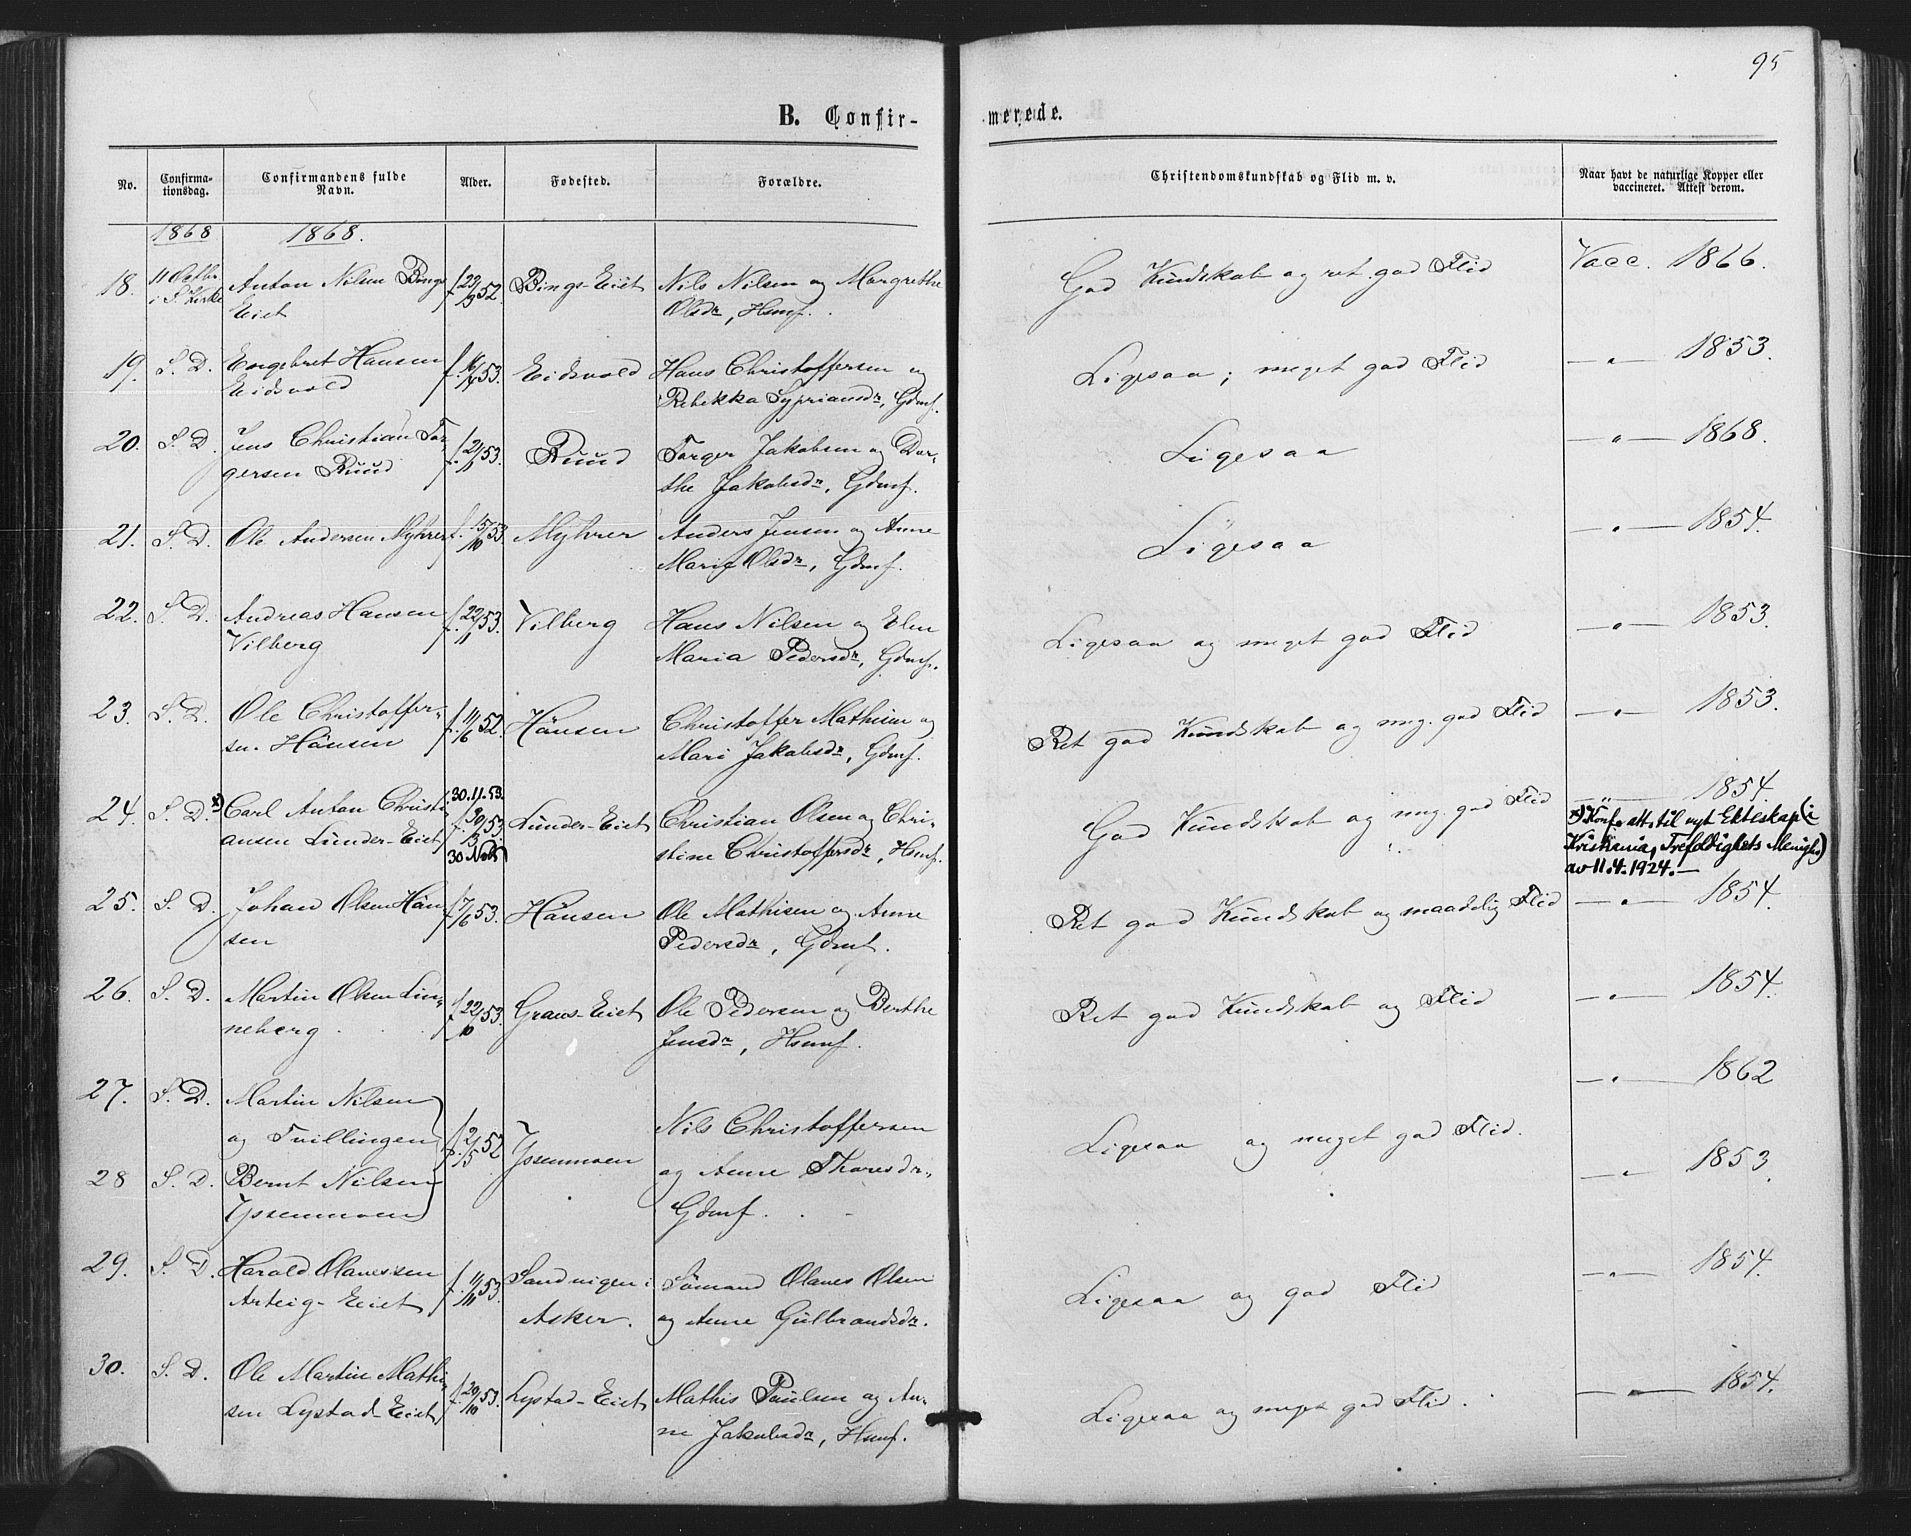 95
B. Confir-
merede.
No.
Confirma-
tionsdag.
Confirmandens fulde
Navn.
Alder.
Fødested.
Forældre.
Christendomskundskab og Flid m. v.
Naar havt de naturlige Kopper eller
vaccineret. Attest derom.
1868 1868.
18. 11 Octbr Anton Nilsen Bings f. 23/9 52. Bings-Eiet Nils Nilsen og Margrethe God Kundskab og ret god Flid Vacc. 1866.
i S. Kirke Eiet Olsdr, Hsmf.
19. S. D. Engebret Hansen f. 16/4 53. Eidsvold Hans Christoffersen og Ligesaa; meget god Flid —"— 1853.
Eidsvold Rebekka Sypriansdr, Gdmf.
20. S. D. Jens Christian Tor- f. 21/1 53. Ruud Torger Jakobsen og Dor- Ligesaa —"— 1868.
gersen Ruud the Jakobsdr, Gdmf.
21. S. D. Ole Andersen Myhrer f. 15/10 53. Myhrer Anders Jensen og Anne Ligesaa —"— 1854.
Marie Olsdr, Gdmf.
22. S. D. Andreas Hansen f. 22/11 53. Vilberg Hans Nilsen og Elen Ligesaa og meget god Flid —"— 1853.
Vilberg Maria Pedersdr, Gdmf.
23. S. D. Ole Christoffer- f. 11/6 52. Hänsen Christoffer Mathisen og Ret god Kundskab og meg. god Flid —"— 1853.
sen Hänsen Mari Jakobsdr, Gdmf.
24. S. D. x) Carl Anton Christi- 30.11.53. Lunder-Eiet Christian Olsen og Chri- God Kundskab og meg. god Flid —"— 1854.
ansen Lunder-Eiet f. 30/3 53. stine Christoffersdr, Hsmf.
30 Novbr
x) Konf. att. til nyt Ekteskap (i
Kristiania, Trefoldighets Menigh.)
av 11.4.1924.—
25. S. D. Johan Olsen Hän- f. 7/6 53. Hänsen Ole Mathisen og Anne Ret god Kundskab og maadelig Flid —"— 1854.
sen Pedersdr, Gdmf.
26. S. D. Martin Olsen Lin- f. 22/10 53. Graus-Eiet Ole Pedersen og Berthe Ret god Kundskab og Flid —"— 1854.
neberg Jensdr, Hsmf.
27. S. D. Martin Nilsen Nils Christoffersen —"— 1862
og Tvillingen f. 2/5 52 Yssenmoen og Anne Thoresdr. Ligesaa og meget god Flid.
28 S. D. Bernt Nilsen Gdmf. —"— 1853.
Yssenmoen
29. S. D. Harald Olavessen f. 11/11 53. Sandvigen i Sømand Olaves Olsen Ligesaa og god Flid —"— 1854.
Arteig-Eiet Asker. og Anne Gulbrandsdr.
30. S. D. Ole Martin Mathi- f. 20/10 53. Lystad-Eiet Mathis Paulsen og An- Ligesaa og meget god Flid. —"— 1854.
sen Lystad-Eiet ne Jakobsdr, Hsmf.